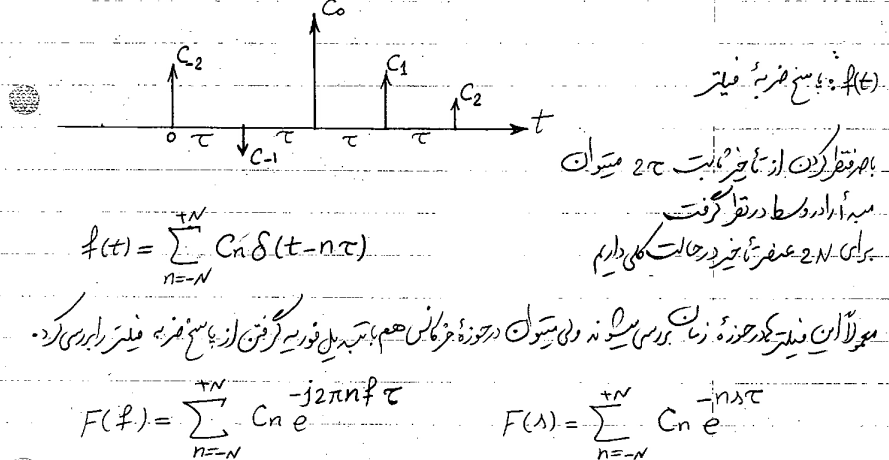 C₀
C₋₂
C₁
C₂
0 τ τ τ τ t
C₋₁
f(t): پاسخ ضربهٔ فیلتر
باصرفنظر کردن از تأخیر ثابت 2τ میتوان
مبدأ را در وسط در نظر گرفت
برای 2N عنصر تأخیر در حالت کلی داریم
f(t) = Σ_{n=-N}^{+N} Cn δ(t-nτ)
معمولاً این فیلترها در حوزهٔ زمان بررسی میشوند ولی میتوان در حوزهٔ فرکانس هم با تبدیل فوریه گرفتن از پاسخ ضربه فیلتر را بررسی کرد.
F(f) = Σ_{n=-N}^{+N} Cn e^{-j2πnfτ} F(s) = Σ_{n=-N}^{+N} Cn e^{-nsτ}